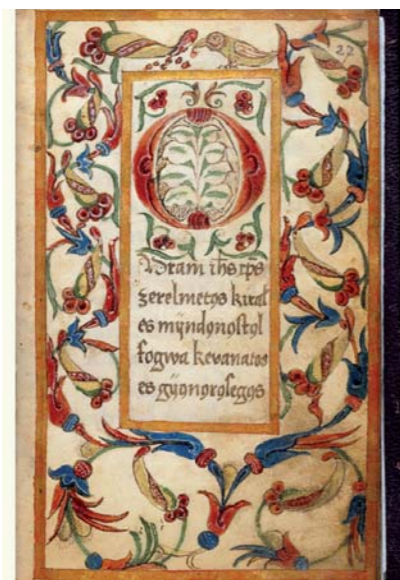 O
Vram ihs xps
zerelmetos kiral
es mÿndonostol
fogwa kevanatos
es gÿonorosegos